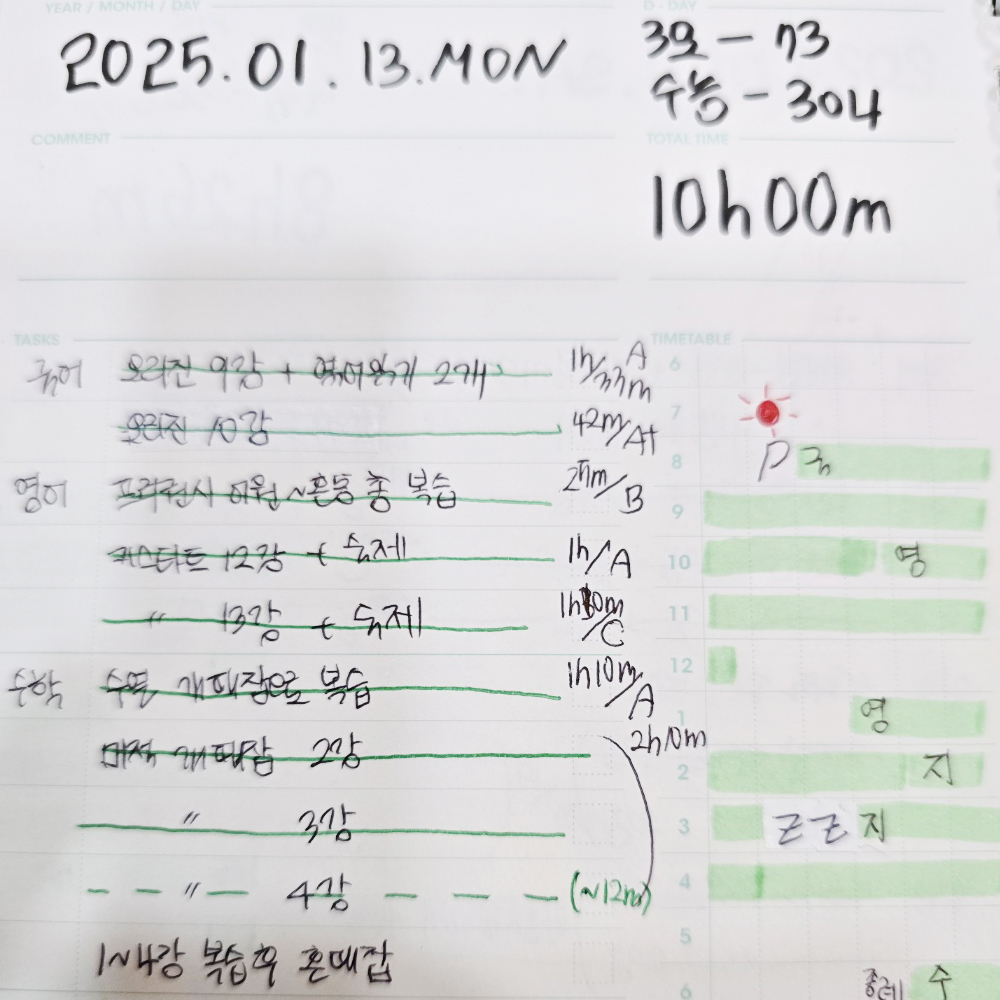 YEAR / MONTH / DAY
2025.01.13.MON
D-DAY
3모 - 73
수능 - 304
COMMENT
TOTAL TIME
10h00m
TASKS
국어 오리진 9강 + 엮어읽기 2개 1h/33m A
오리진 10강 42m/A+
영어 어원~혼동 총 복습 25m/B
키스타트 12강 + 숙제 1h/A
〃 13강 + 숙제 /C
수학 수열 개때잡으로 복습 1h10m/A
미적 개때잡 2강 2h10m
〃 3강
〃 4강 (~12nm)
1~4강 복습 후 혼때잡
TIMETABLE
6
7
8 P 국
9
10 영
11
12
1 영
2 지
3 ZZ 지
4
5
6 종례 수